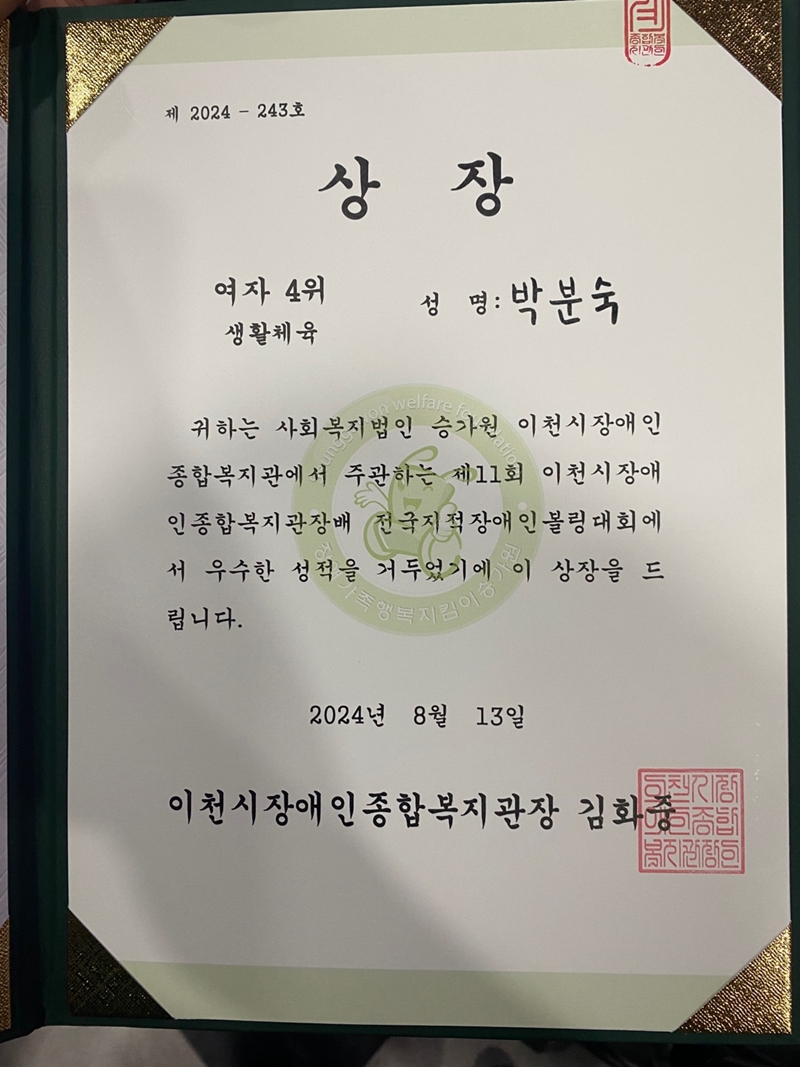 제 2024 - 243호
상 장
여자 4위
생활체육
성 명: 박분숙
귀하는 사회복지법인 승가원 이천시장애인
종합복지관에서 주관하는 제11회 이천시장애
인종합복지관장배 전국지적장애인볼링대회에
서 우수한 성적을 거두었기에 이 상장을 드
립니다.
2024년 8월 13일
이천시장애인종합복지관장 김화중
welfare
가족행복지킴이승가원